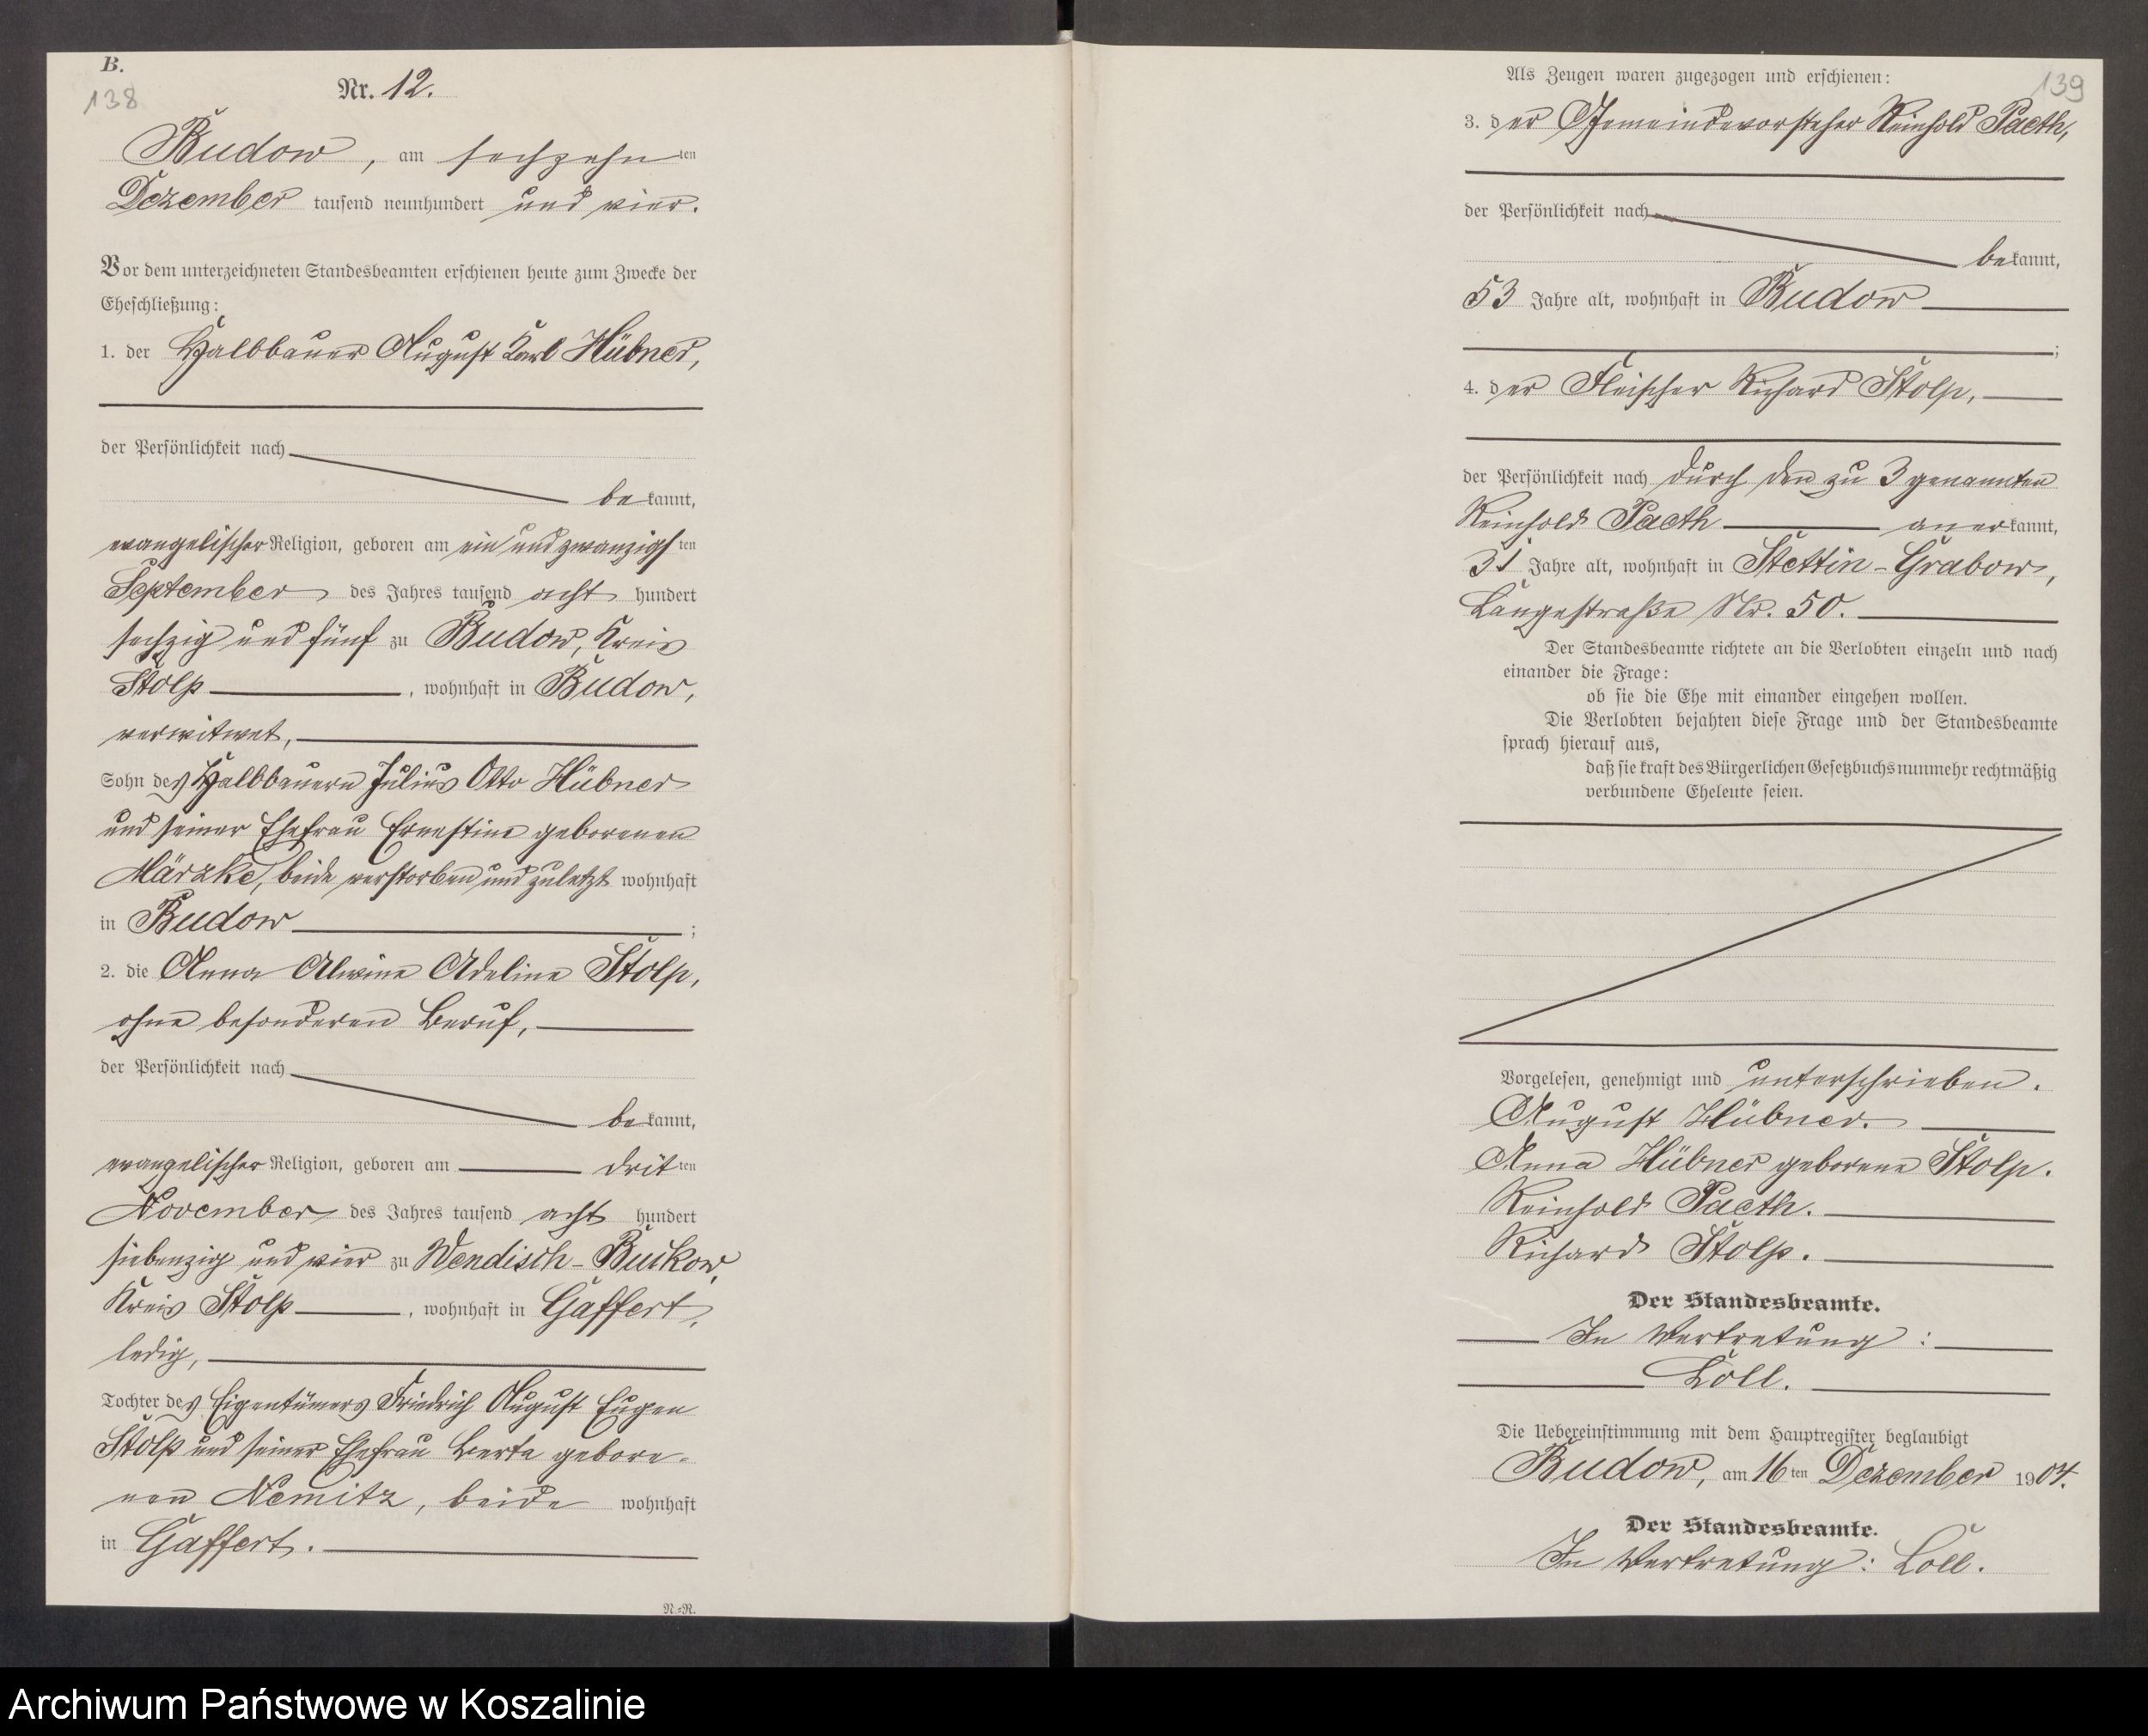 B.
138
Nr. 12.
Budow, am sechzehnten
Dezember tausend neunhundert und vier.
Vor dem unterzeichneten Standesbeamten erschienen heute zum Zwecke der
Eheschließung:
1. der Halbbauer August Karl Hübner,
der Persönlichkeit nach
bekannt,
evangelischer Religion, geboren am ein und zwanzigsten
September des Jahres tausend acht hundert
sechzig und fünf zu Budow, Kreis
Stolp, wohnhaft in Budow,
verwitwet,
Sohn des Halbbauern Julius Otto Hübner
und seiner Ehefrau Ernestine geborenen
Märzke, beide verstorben und zuletzt wohnhaft
in Budow;
2. die Anna Alwine Adeline Stolp,
ohne besonderen Beruf,
der Persönlichkeit nach
bekannt,
evangelischer Religion, geboren am dritten
November des Jahres tausend acht hundert
siebenzig und vier zu Wendisch-Buckow,
Kreis Stolp, wohnhaft in Gaffert,
ledig,
Tochter des Eigentümers Friedrich August Eugen
Stolp und seiner Ehefrau Berta gebore-
nen Nemitz, beide wohnhaft
in Gaffert.
N.-R.
139
Als Zeugen waren zugezogen und erschienen:
3. der Gemeindevorsteher Reinhold Paeth,
der Persönlichkeit nach
bekannt,
53 Jahre alt, wohnhaft in Budow
;
4. der Fleischer Richard Stolp,
der Persönlichkeit nach durch den zu 3 genannten
Reinhold Paeth anerkannt,
31 Jahre alt, wohnhaft in Stettin-Grabow,
Langestraße Nr. 50.
Der Standesbeamte richtete an die Verlobten einzeln und nach
einander die Frage:
ob sie die Ehe mit einander eingehen wollen.
Die Verlobten bejahten diese Frage und der Standesbeamte
sprach hierauf aus,
daß sie kraft des Bürgerlichen Gesetzbuchs nunmehr rechtmäßig
verbundene Eheleute seien.
Vorgelesen, genehmigt und unterschrieben.
August Hübner.
Anna Hübner geborene Stolp.
Reinhold Paeth.
Richard Stolp.
Der Standesbeamte.
In Vertretung:
Loll.
Die Uebereinstimmung mit dem Hauptregister beglaubigt
Budow, am 16ten Dezember 1904.
Der Standesbeamte.
In Vertretung: Loll.
Archiwum Państwowe w Koszalinie